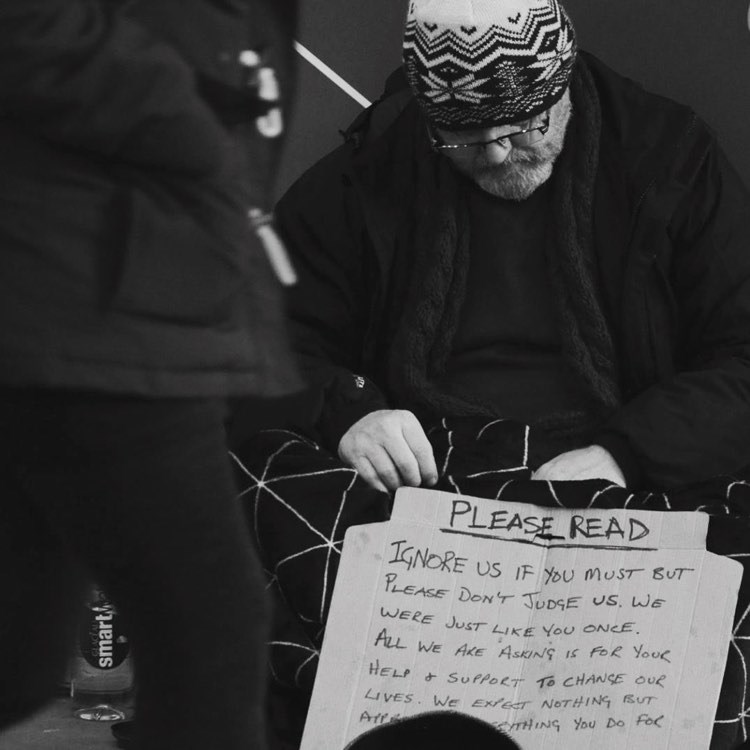 PLEASE READ
IGNORE US IF YOU MUST BUT
PLEASE DON'T JUDGE US. WE
WERE JUST LIKE YOU ONCE.
ALL WE ARE ASKING IS FOR YOUR
HELP & SUPPORT TO CHANGE OUR
LIVES. WE EXPECT NOTHING BUT
YOU DO FOR
smart